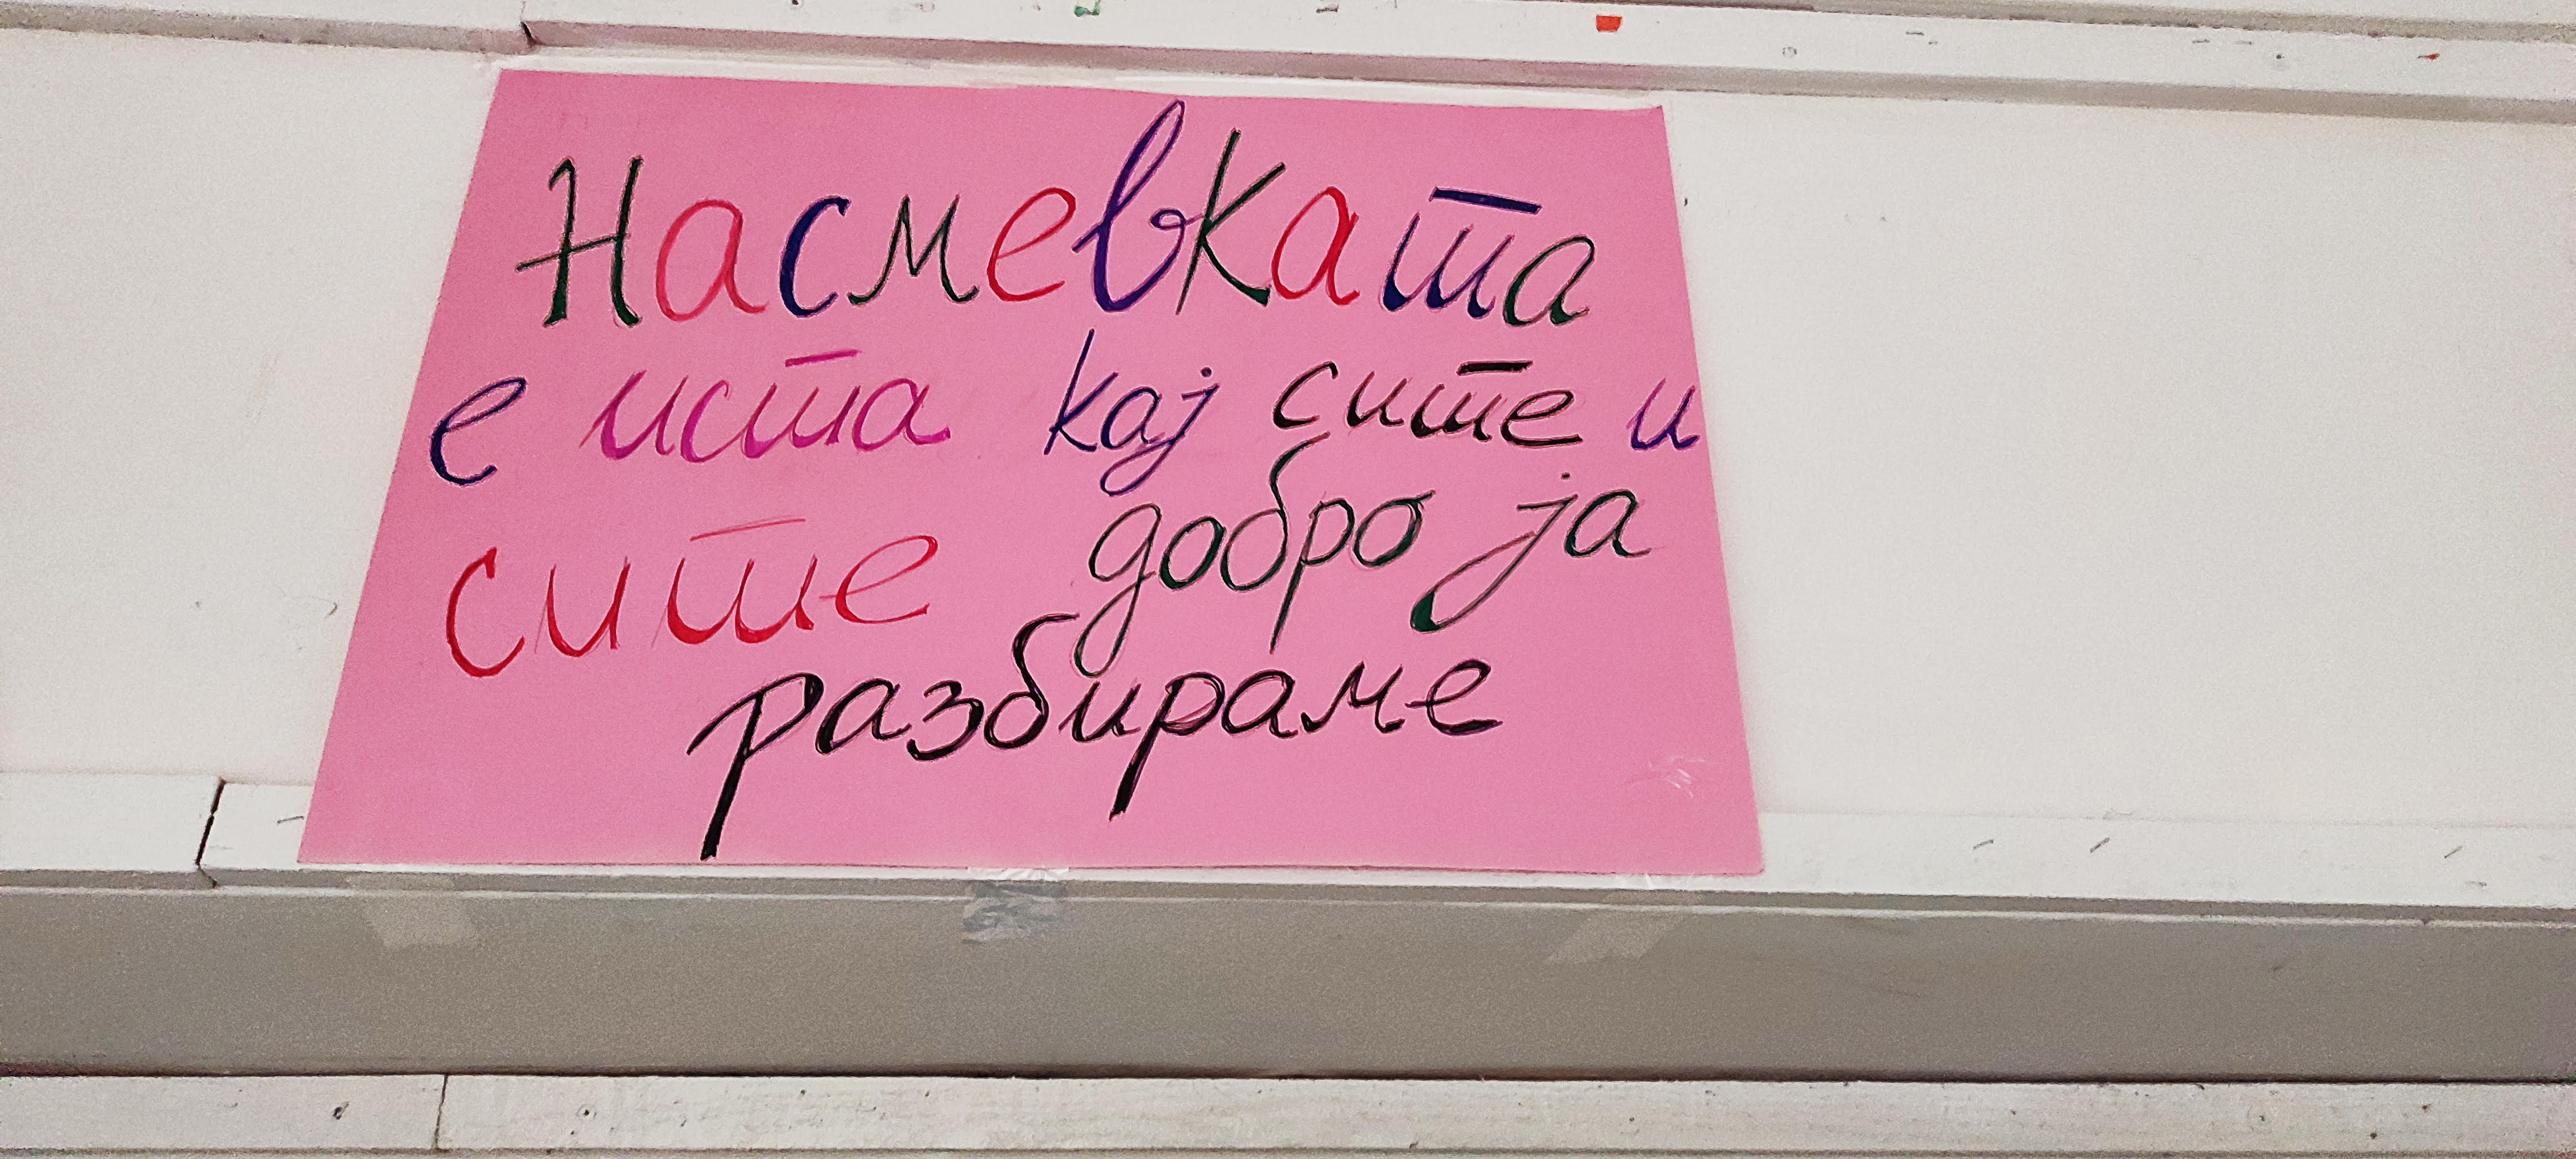 Насмевката
е иста кај сите и
сите добро ја
разбираме